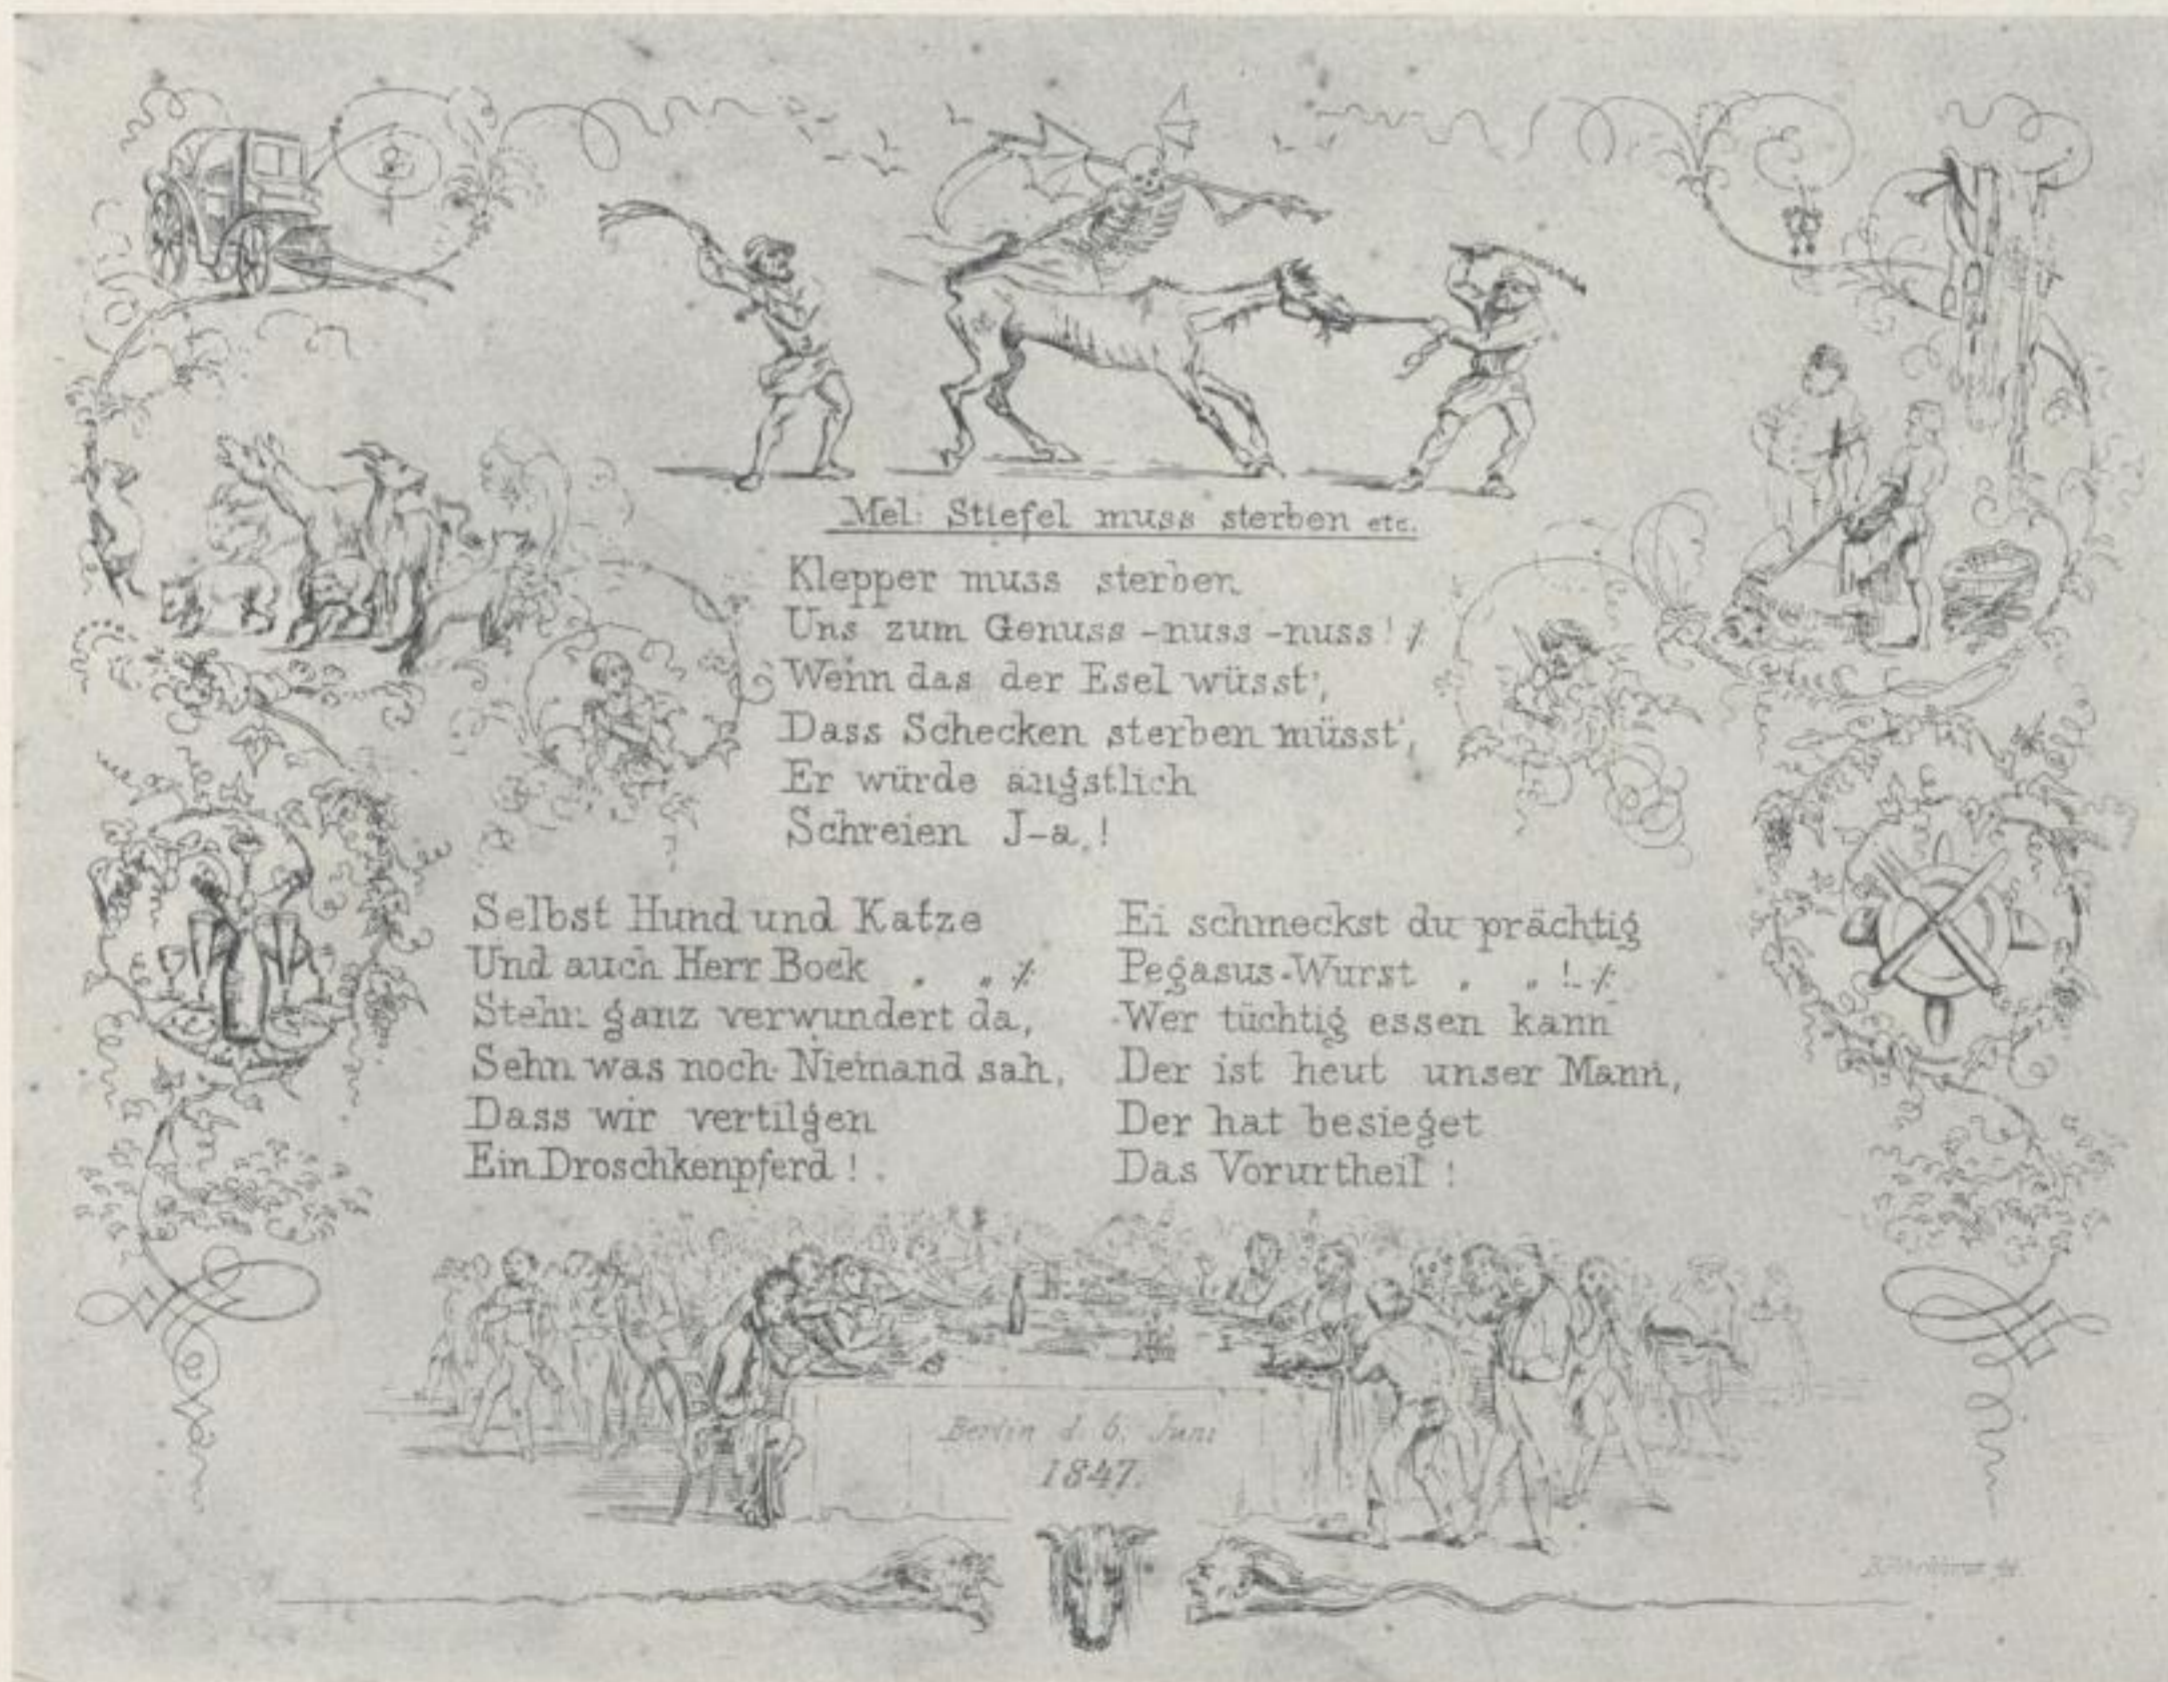 Mel: Stiefel muss sterben etc.
Klepper muss sterben
Uns zum Genuss -nuss -nuss! ⁒
Wenn das der Esel wüsst',
Dass Schecken sterben müsst',
Er würde ängstlich
Schreien J-a,!
Selbst Hund und Katze
Und auch Herr Bock " " ⁒
Stehn ganz verwundert da,
Sehn was noch Niemand sah,
Dass wir vertilgen
Ein Droschkenpferd!
Ei schmeckst du prächtig
Pegasus-Wurst " " ! ⁒
Wer tüchtig essen kann
Der ist heut unser Mann,
Der hat besieget
Das Vorurtheil!
Berlin d. 6. Juni
1847.